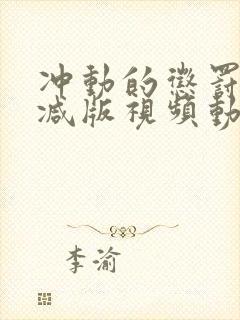 冲動的懲罰
减版視頻動
李渝